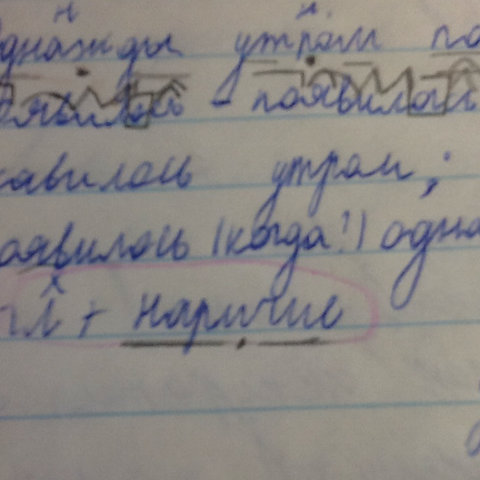 н н
однажды утром по
оявилось - появилось
явилось утром;
оявилось (когда?) одна
гл + наречие